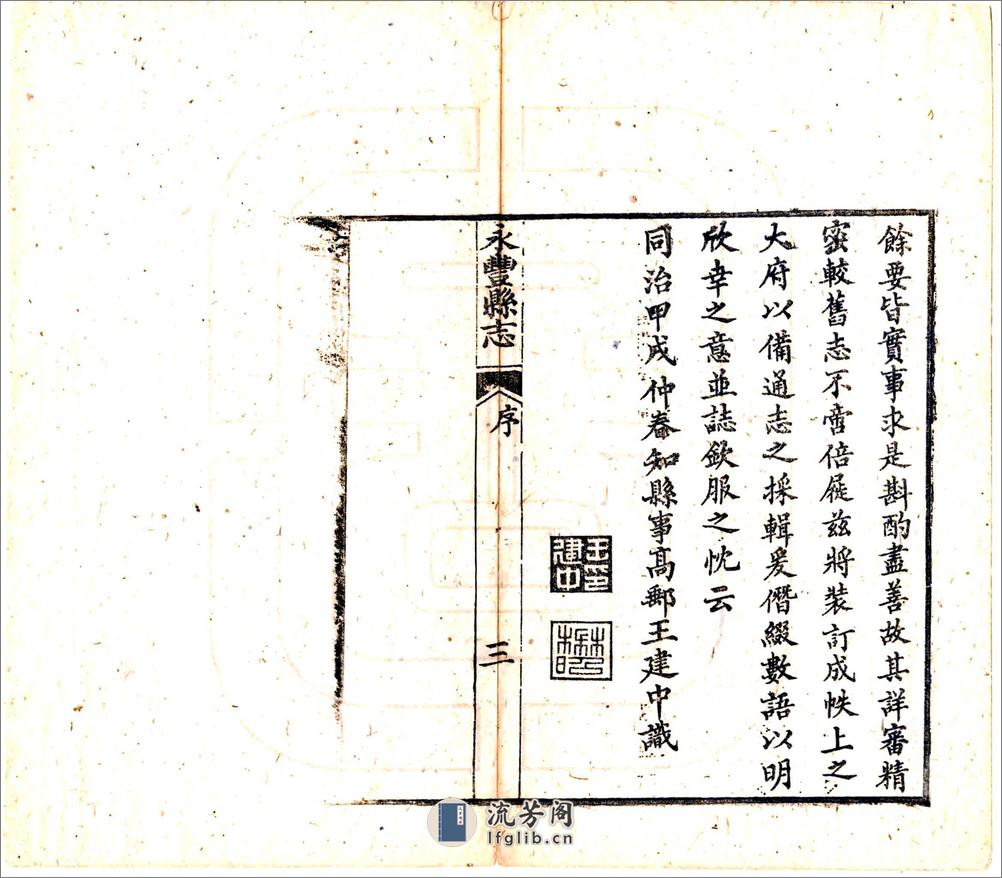 餘要皆實事求是斟酌盡善故其詳審精
蜜較舊志不啻倍蓰兹將裝訂成帙上之
大府以備通志之採輯爰僭綴數語以明
欣幸之意並誌欽服之忱云
同治甲戌仲春知縣事高郵王建中識
王印建中
永豐縣志
序
三
流芳阁
lfglib.cn